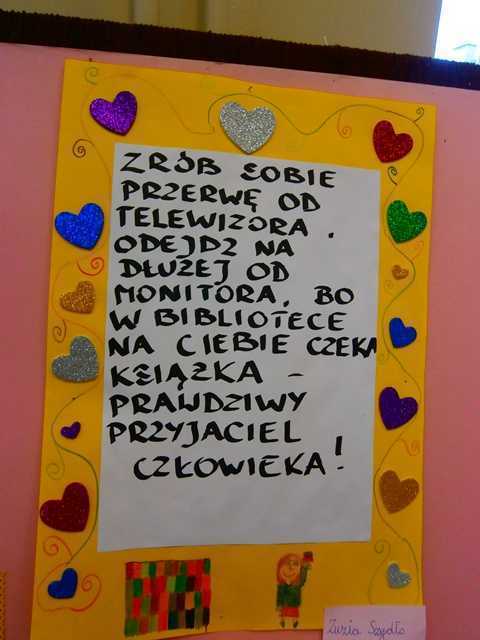 ZRÓB SOBIE
PRZERWĘ OD
TELEWIZORA.
ODEJDZ NA
DŁUŻEJ OD
MONITORA, BO
W BIBLIOTECE
NA CIEBIE CZEKA
KSIĄŻKA –
PRAWDZIWY
PRZYJACIEL
CZŁOWIEKA!
Zuzia Szydło